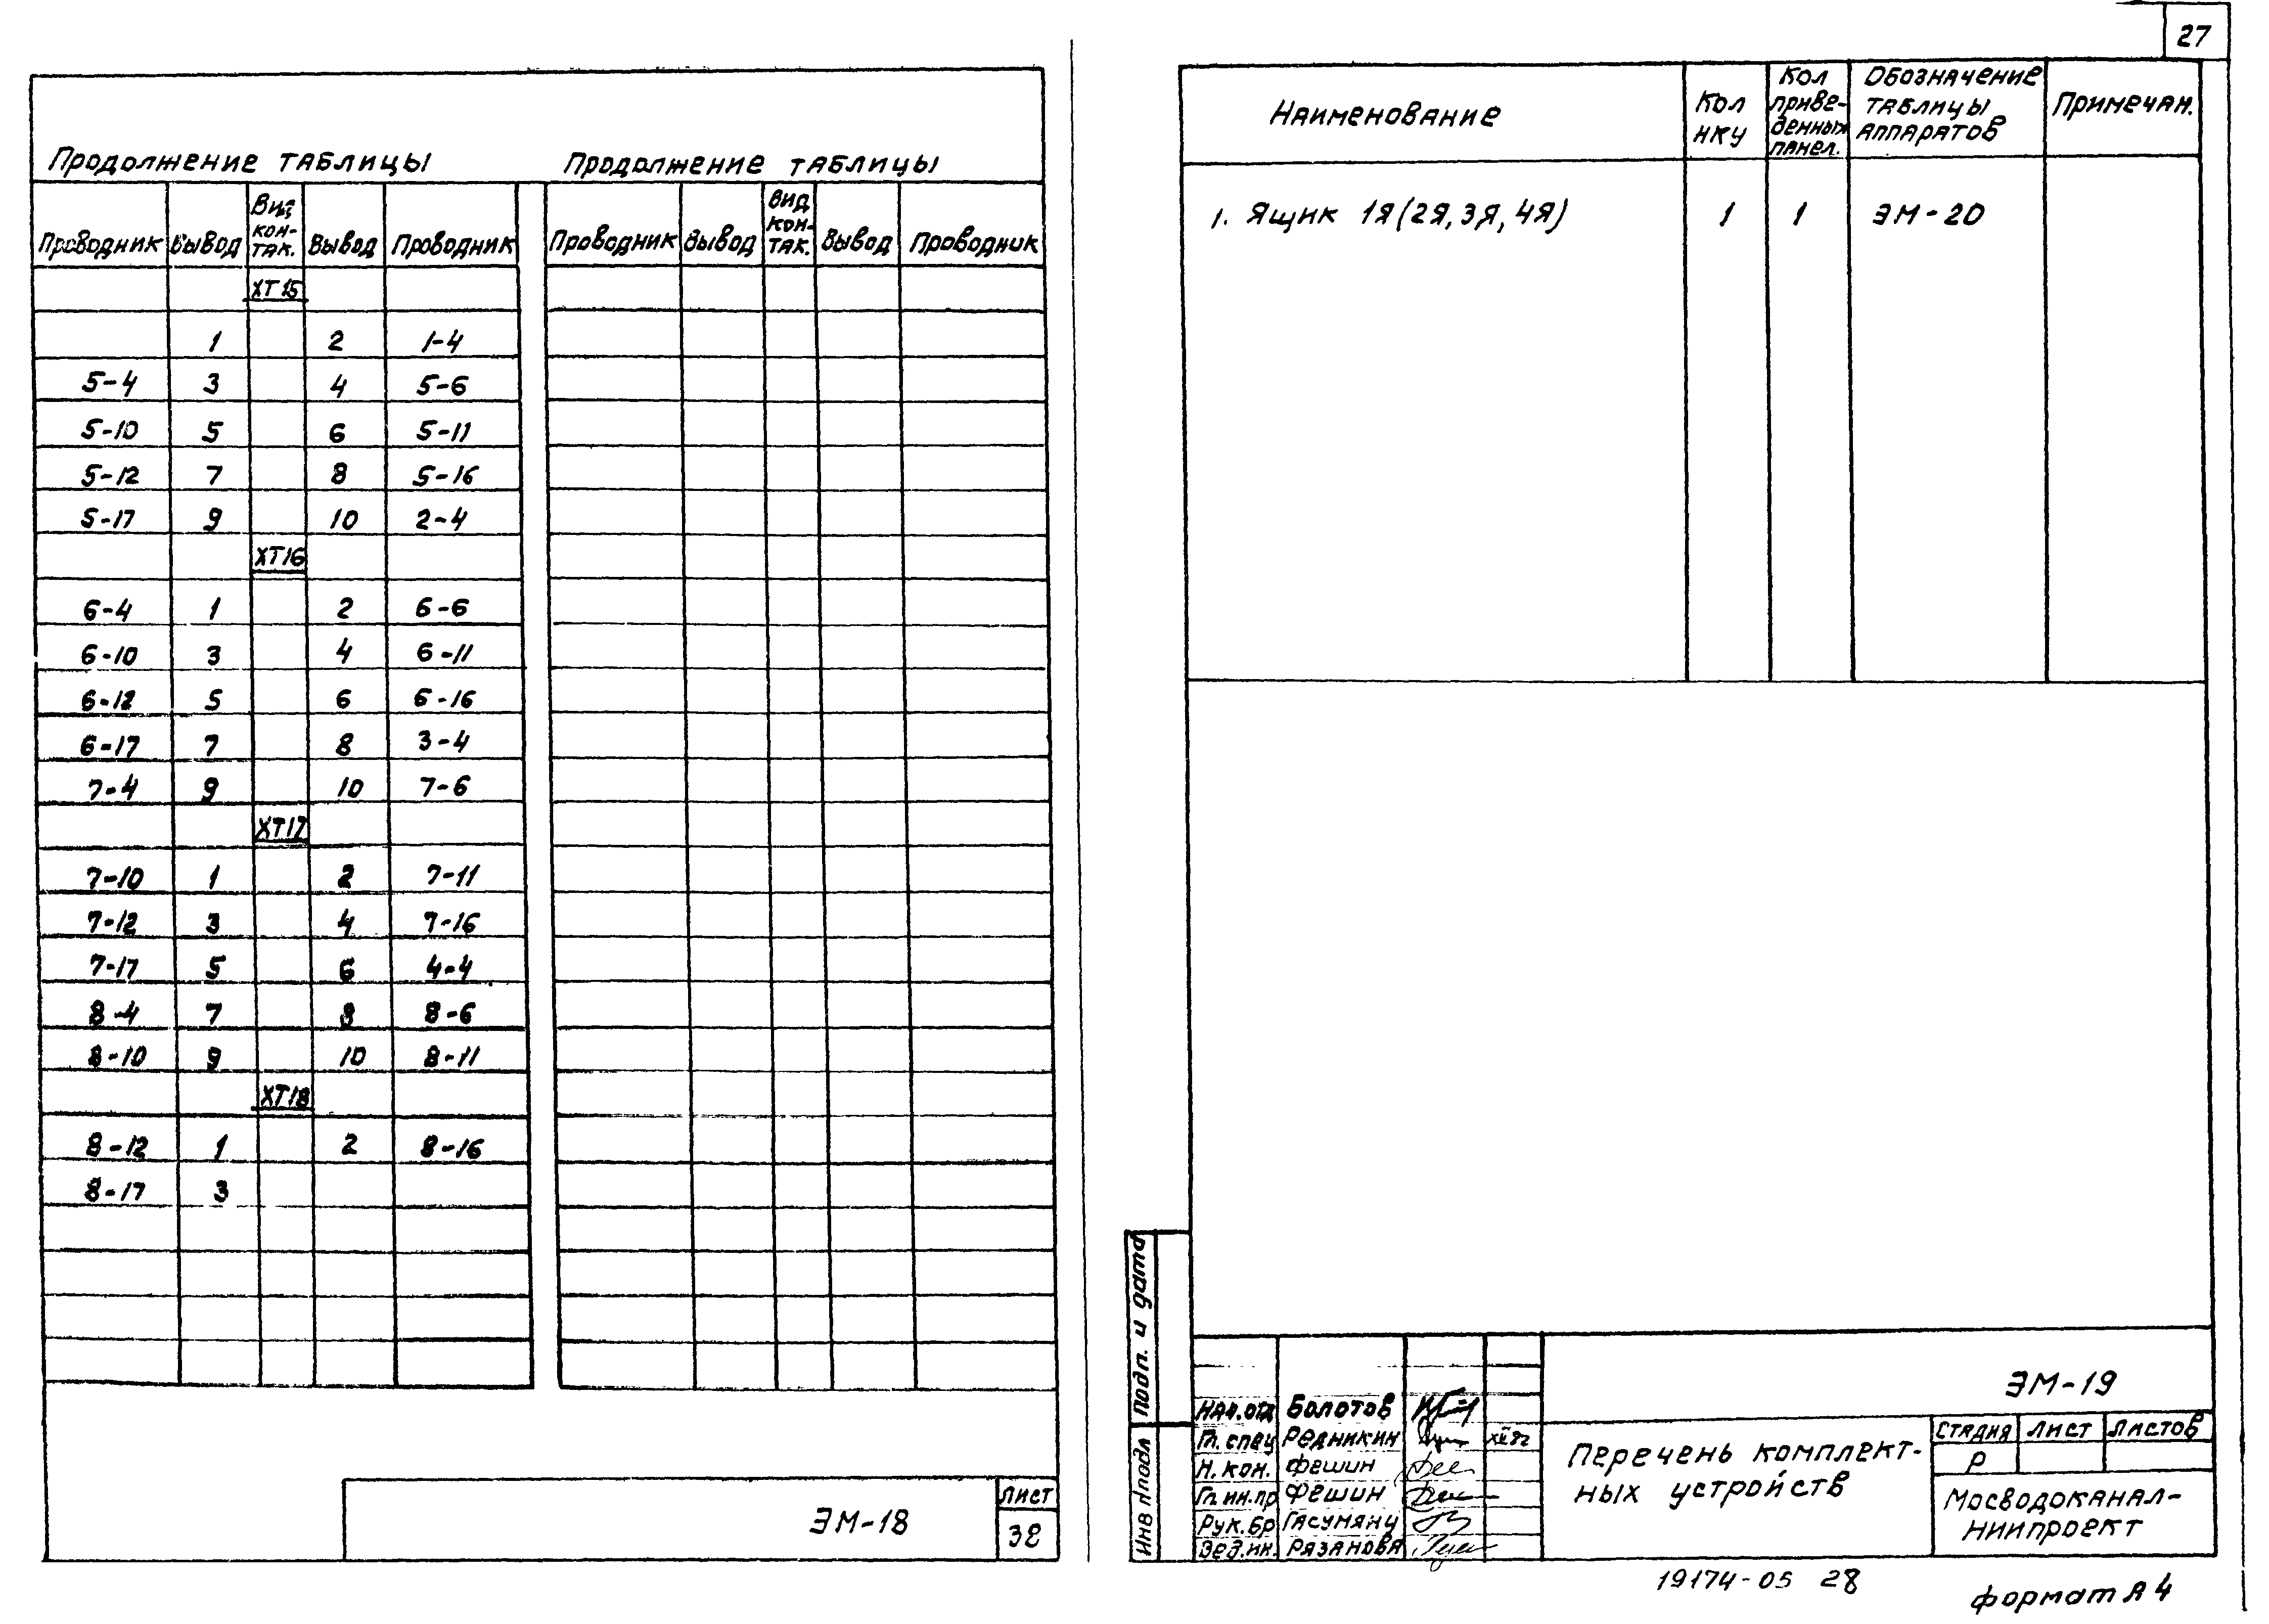 27
Продолжение таблицы Продолжение таблицы
Проводник Вывод Вид кон-так. Вывод Проводник Проводник Вывод Вид кон-так. Вывод Проводник
ХТ15
1 2 1-4
5-4 3 4 5-6
5-10 5 6 5-11
5-12 7 8 5-16
5-17 9 10 2-4
ХТ16
6-4 1 2 6-6
6-10 3 4 6-11
6-12 5 6 6-16
6-17 7 8 3-4
7-4 9 10 7-6
ХТ17
7-10 1 2 7-11
7-12 3 4 7-16
7-17 5 6 4-4
8-4 7 8 8-6
8-10 9 10 8-11
ХТ18
8-12 1 2 8-16
8-17 3
ЭМ-18
Лист
32
Наименование
Кол
нку
Кол
приве-
денных
панел.
Обозначение
таблицы
аппаратов
Примечан.
1. Ящик 1Я(2Я,3Я,4Я) 1 1 ЭМ-20
Подп. и дата
Инв № подл
Нач.отд Болотов
Гл. спец Редникин XII 82
Н. кон. Фешин
Гл. ин. пр Фешин
Рук. бр Гасумянц
Вед. ин. Рязанова
ЭМ-19
Перечень комплект-
ных устройств
Стадия Лист Листов
Р
Мосводоканал-
НИИпроект
19174-05 28
формат А4